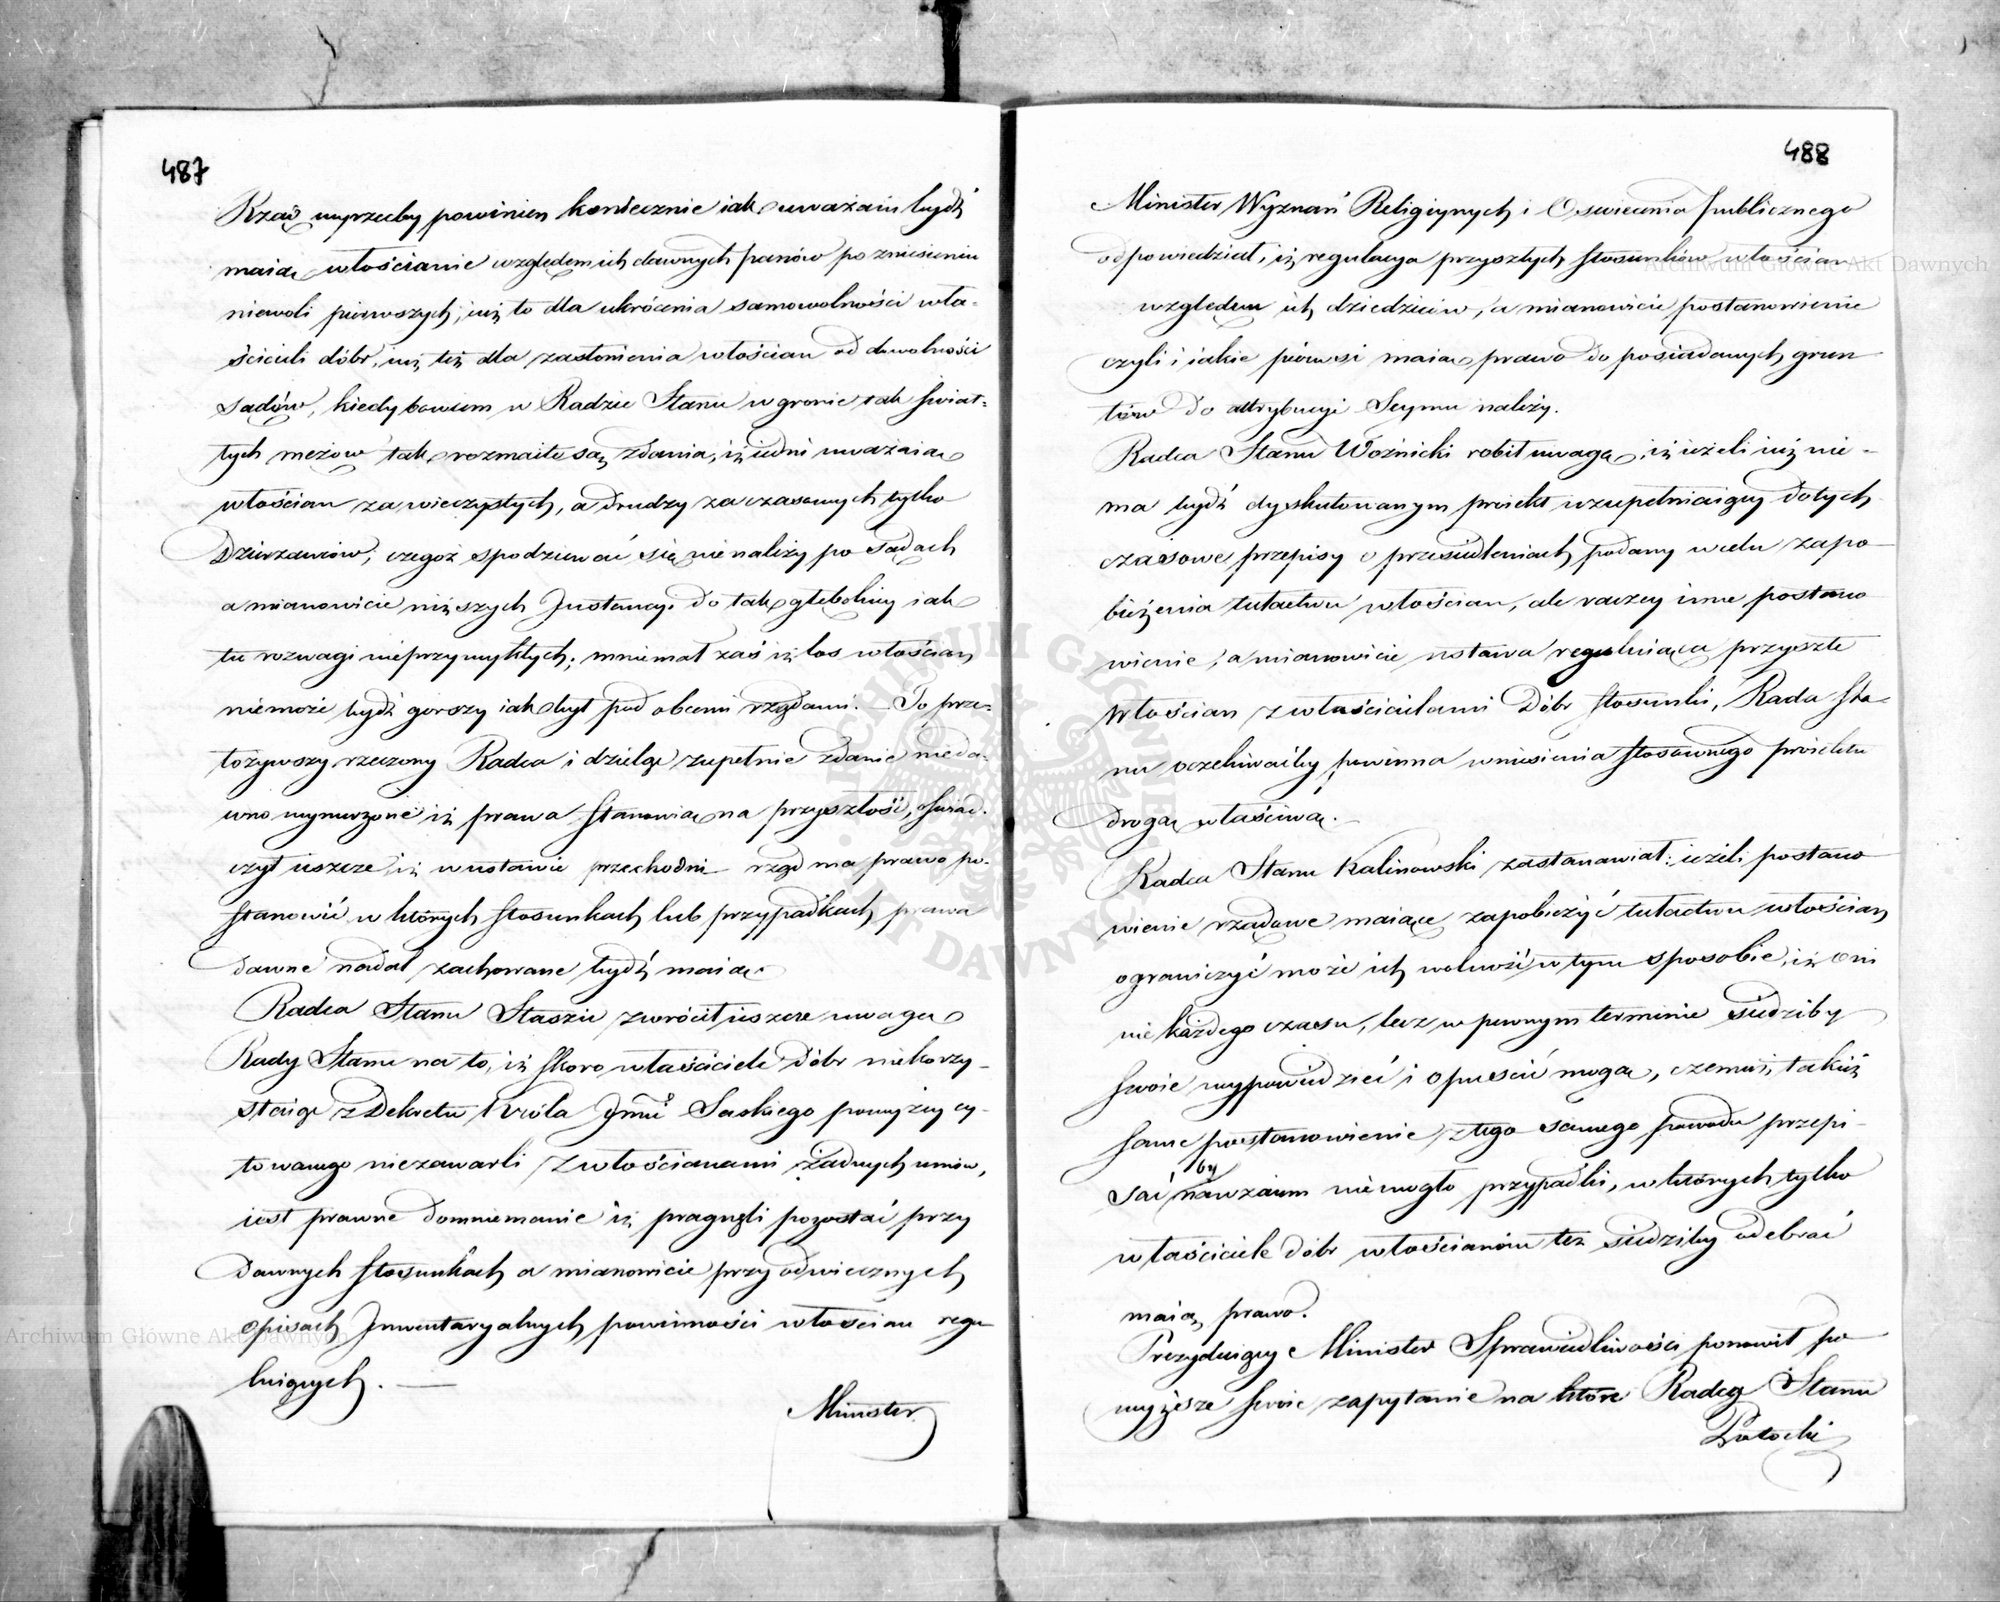 487
Rząd wyrzecby powinien koniecznie iak uważani bydź
maią włościanie względem ich dawnych panów po zniesieniu
niewoli pierwszych; iuż to dla ukrócenia samowolności wła-
ścicieli dóbr, iuż też dla zasłonienia włościan od dowolności
Sądów, kiedy bowiem w Radzie Stanu w gronie tak świat-
łych mężów tak rozmaite są zdania, iż iedni uważaią
włościan za wieczystych, a drudzy za czasowych tylko
Dzierżawców, czegoż spodziewać się nie należy po Sądach
a mianowicie niższych Instancyi do tak głębokiey iak
tu rozwagi nieprzywykłych; mniemał zaś iż los włościan
niemoże bydź gorszy iak był pod obcemi rządami. — To prze-
łożywszy rzeczony Radca i dzieląc zupełnie zdanie nieda-
wno wynurzone iż prawa stanowią na przyszłość, świad-
czył ieszcze iż w ustawie przechodni rząd ma prawo po-
stanowić w których stosunkach lub przypadkach prawa
dawne nadal zachowane bydź maią.
Radca Stanu Staszic zwrócił ieszcze uwagę
Rady Stanu na to, iż skoro właściciele dóbr niekorzy-
staiąc z Dekretu Króla Jmci Saskiego powyżey cy-
towanego niezawarli z włościanami żadnych umów,
iest prawne domniemanie iż pragnęli pozostać przy
Dawnych stosunkach a mianowicie przy odwiecznych
opisach Inwentaryalnych powinności włościan regu-
luiących. —
Minister
488
Minister Wyznań Religiynych i Oświecenia publicznego
odpowiedział, iż regulacya przyszłych stosunków włościan
względem ich dziedziców, a mianowicie postanowienie
czyli i iakie pierwsi maią prawo do posiadanych grun-
tów do attrybucyi Seymu należy.
Radca Stanu Woźnicki robił uwagę, iż ieżeli iuż nie-
ma bydź dyskutowanym proiekt uzupełniaiący dotych-
czasowe przepisy o przesiedleniach podany w celu zapo-
bieżenia tułactwu włościan, ale raczey inne postano-
wienie, a mianowicie ustawa reguluiąca przyszłe
Włościan z właścicielami Dóbr stosunki, Rada Sta-
nu oczekiwaćby powinna wniesienia stosownego proiektu
drogą właściwą. —
Radca Stanu Kalinowski zastanawiał: ieżeli postano-
wienie rządowe maiące zapobieżyć tułactwu włościan
ograniczyć może ich wolność w tym sposobie, iż oni
nie każdego czasu, lecz w pewnym terminie siedziby
swoie wypowiedzieć i opuścić mogą, czemuż, takież
same postanowienie z tego samego powodu przepi-
saćby nawzaiem niemogło przypadki, w których tylko
właściciele dóbr włościanów też siedziby odebrać
maią prawo.
Prezyduiący Minister Sprawiedliwości ponowił po-
wyższe swoie zapytanie na które Radcy Stanu
Potocki
Archiwum Główne Akt Dawnych
Archiwum Główne Akt Dawnych
ARCHIWUM GŁÓWNE AKT DAWNYCH